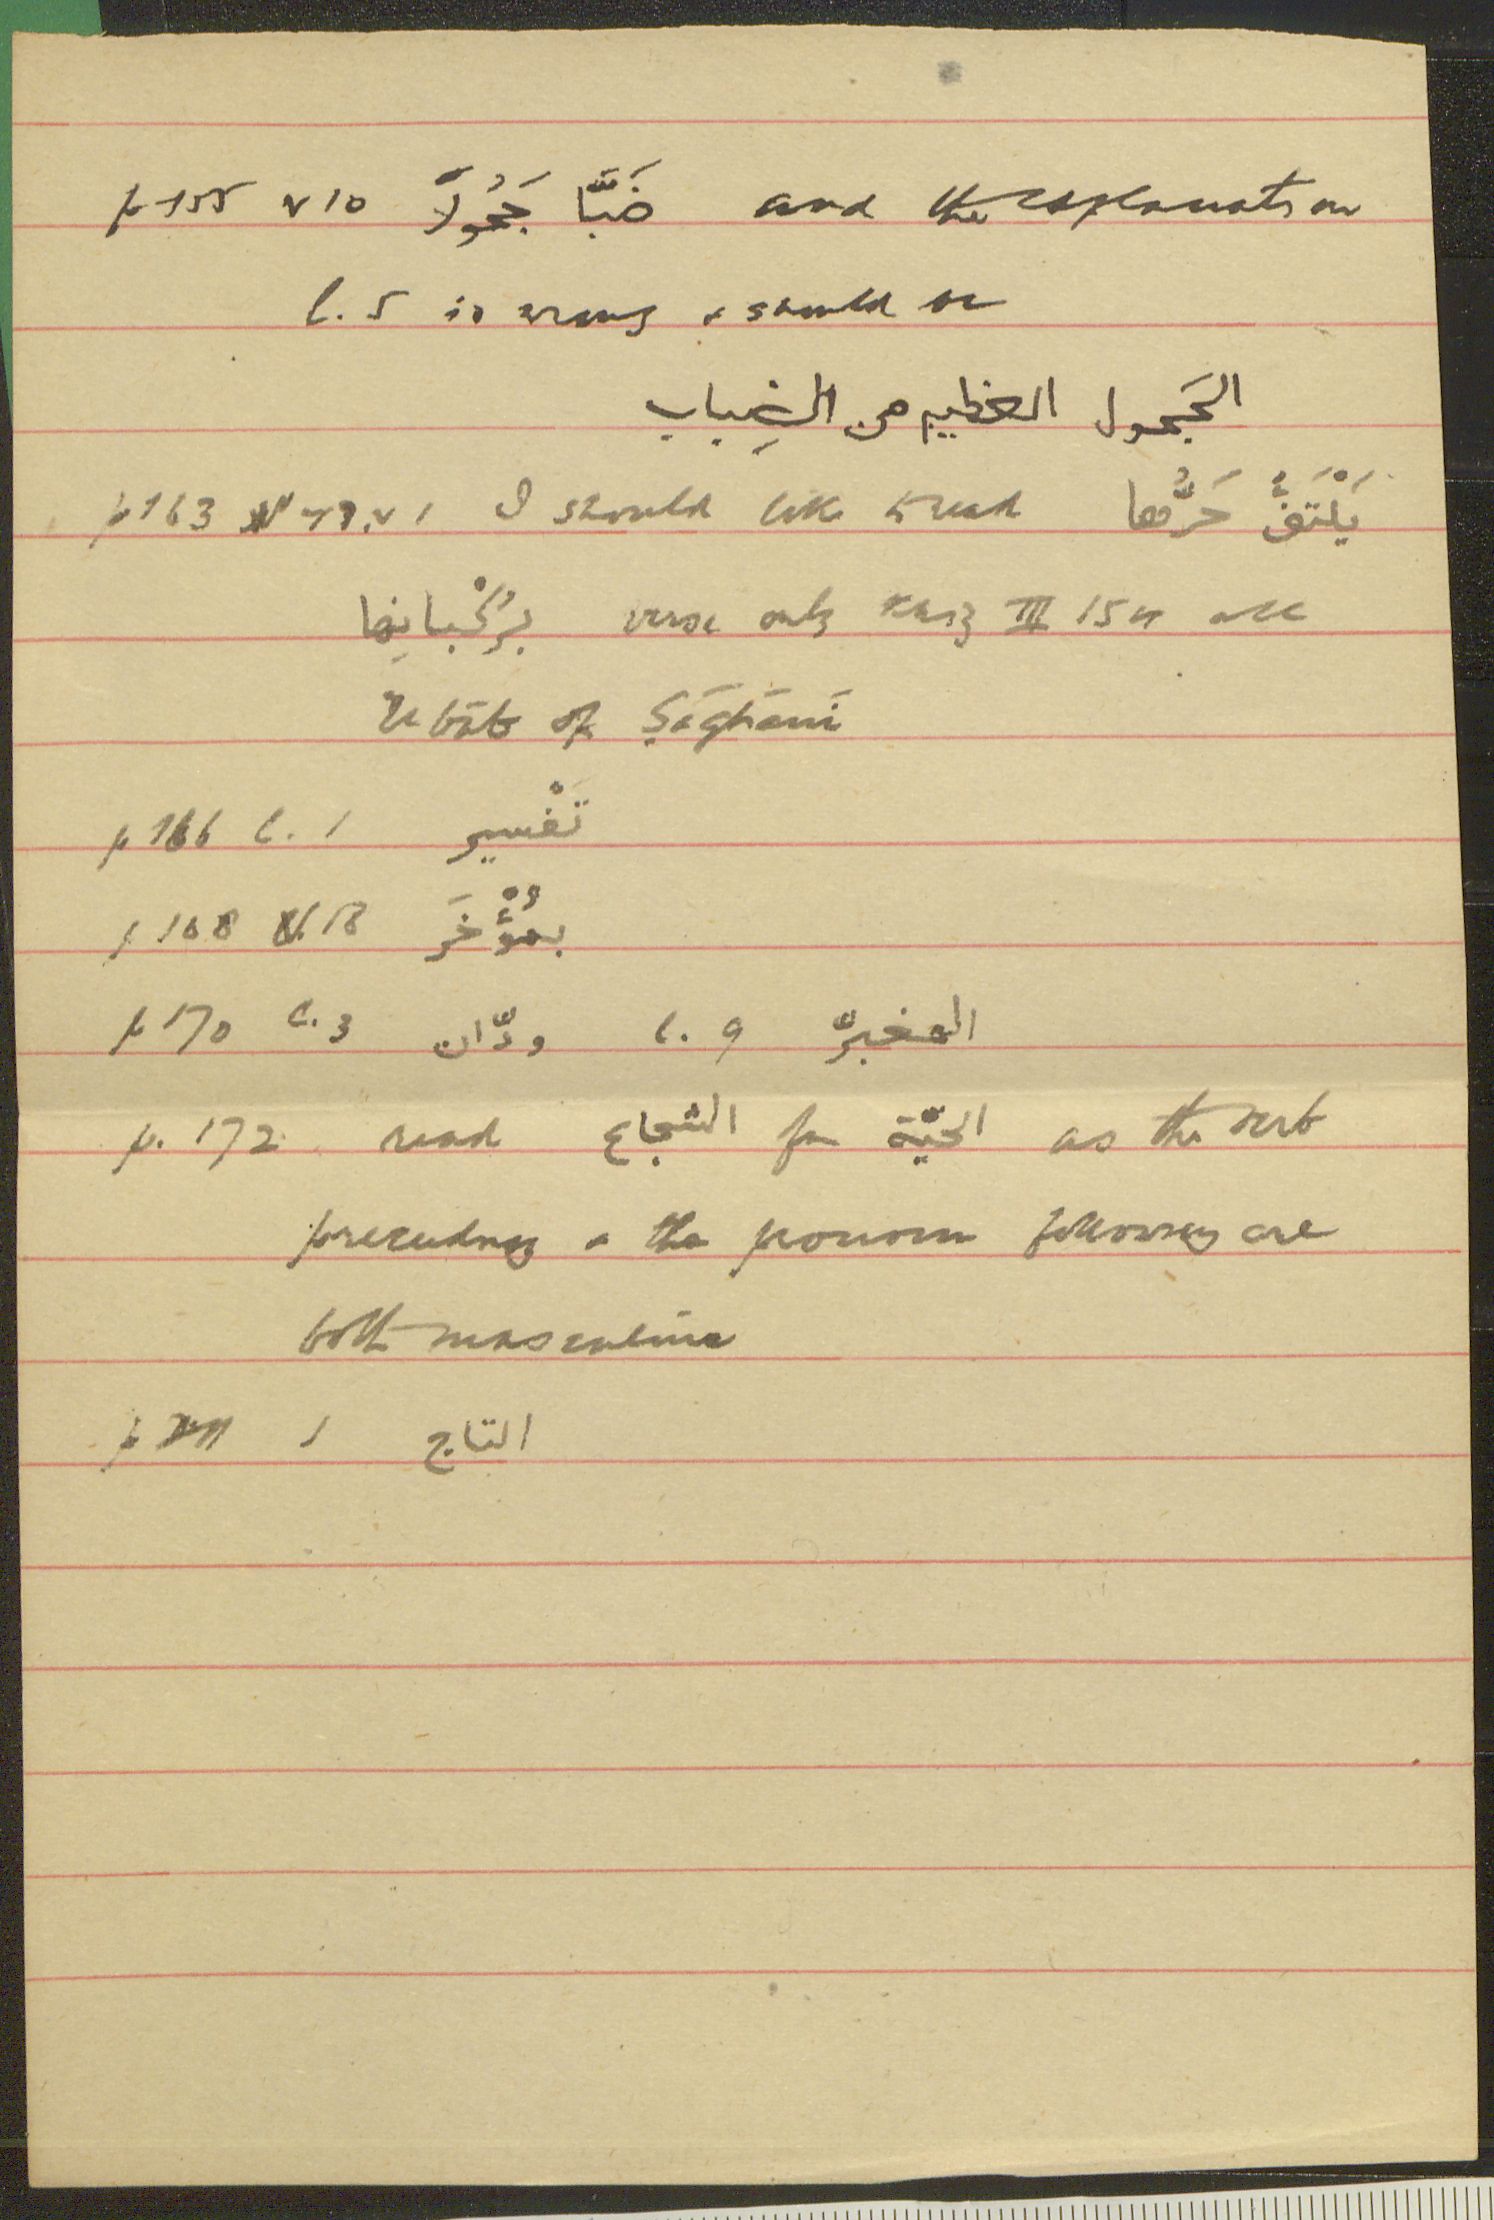 p 155 v 10 ضَبًّا جَحُولًا and the explanation
l. 5 is wrong & should be
الجَحول العظيم من الضِباب
p 163 v 1 I should like to read يَلْتَفُّ حَرُّها
بِرُكْبانِها verse only Taj III 15 
Ubāb of Ṣaghānī
p 166 l. 1 تَفْسير
p 168 l. 13 بمُؤْخَرَ
p 170 l. 3 ودّان l. 9 المخبرّ
p. 172 read الشجاع for الحيّة as the verb
preceeding & the pronoun following are
both masculine
p 1 التاج